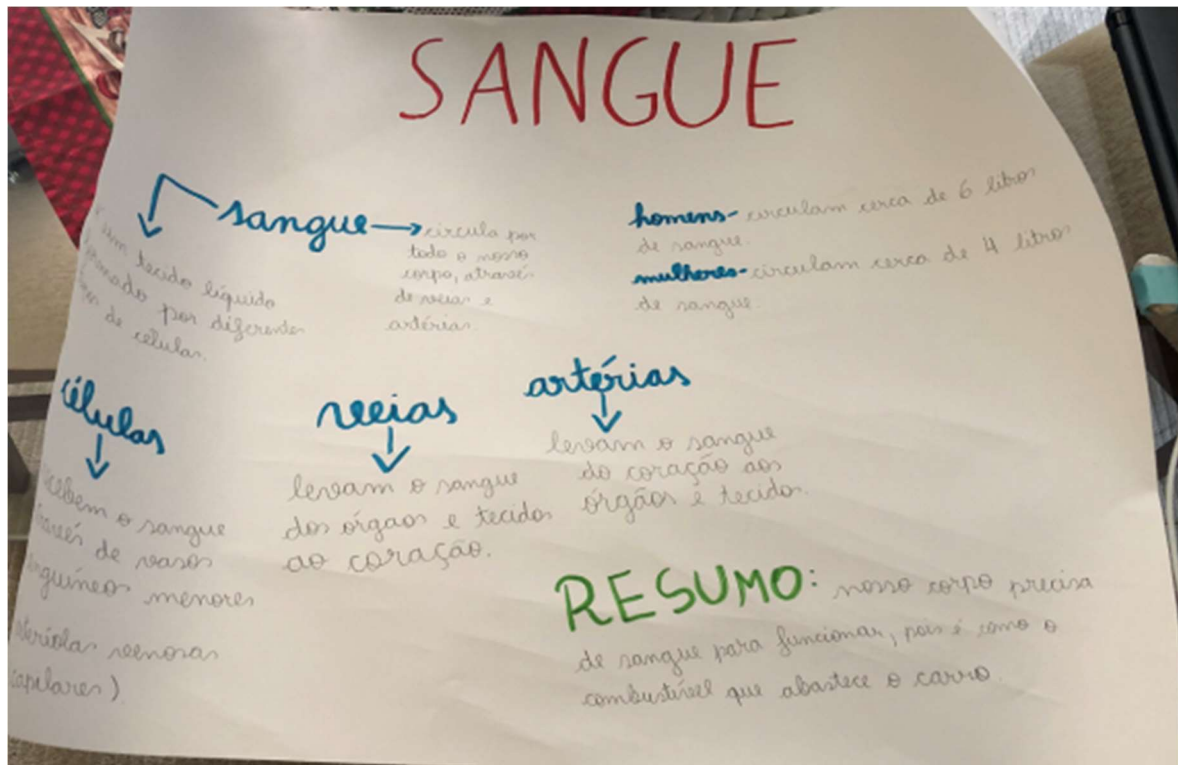 SANGUE
sangue
um tecido líquido
formado por diferentes
de células.
circula por
todo o nosso
corpo, através
de veias e
artérias.
homens- circulam cerca de 6 litros
de sangue.
mulheres- circulam cerca de 4 litros
de sangue.
células
recebem o sangue
através de vasos
sanguíneos menores
venosas
capilares)
veias
levam o sangue
dos órgaos e tecidos
ao coração.
artérias
levam o sangue
do coração aos
órgãos e tecidos.
RESUMO: nosso corpo precisa
de sangue para funcionar, pois é como o
combustível que abastece o carro.